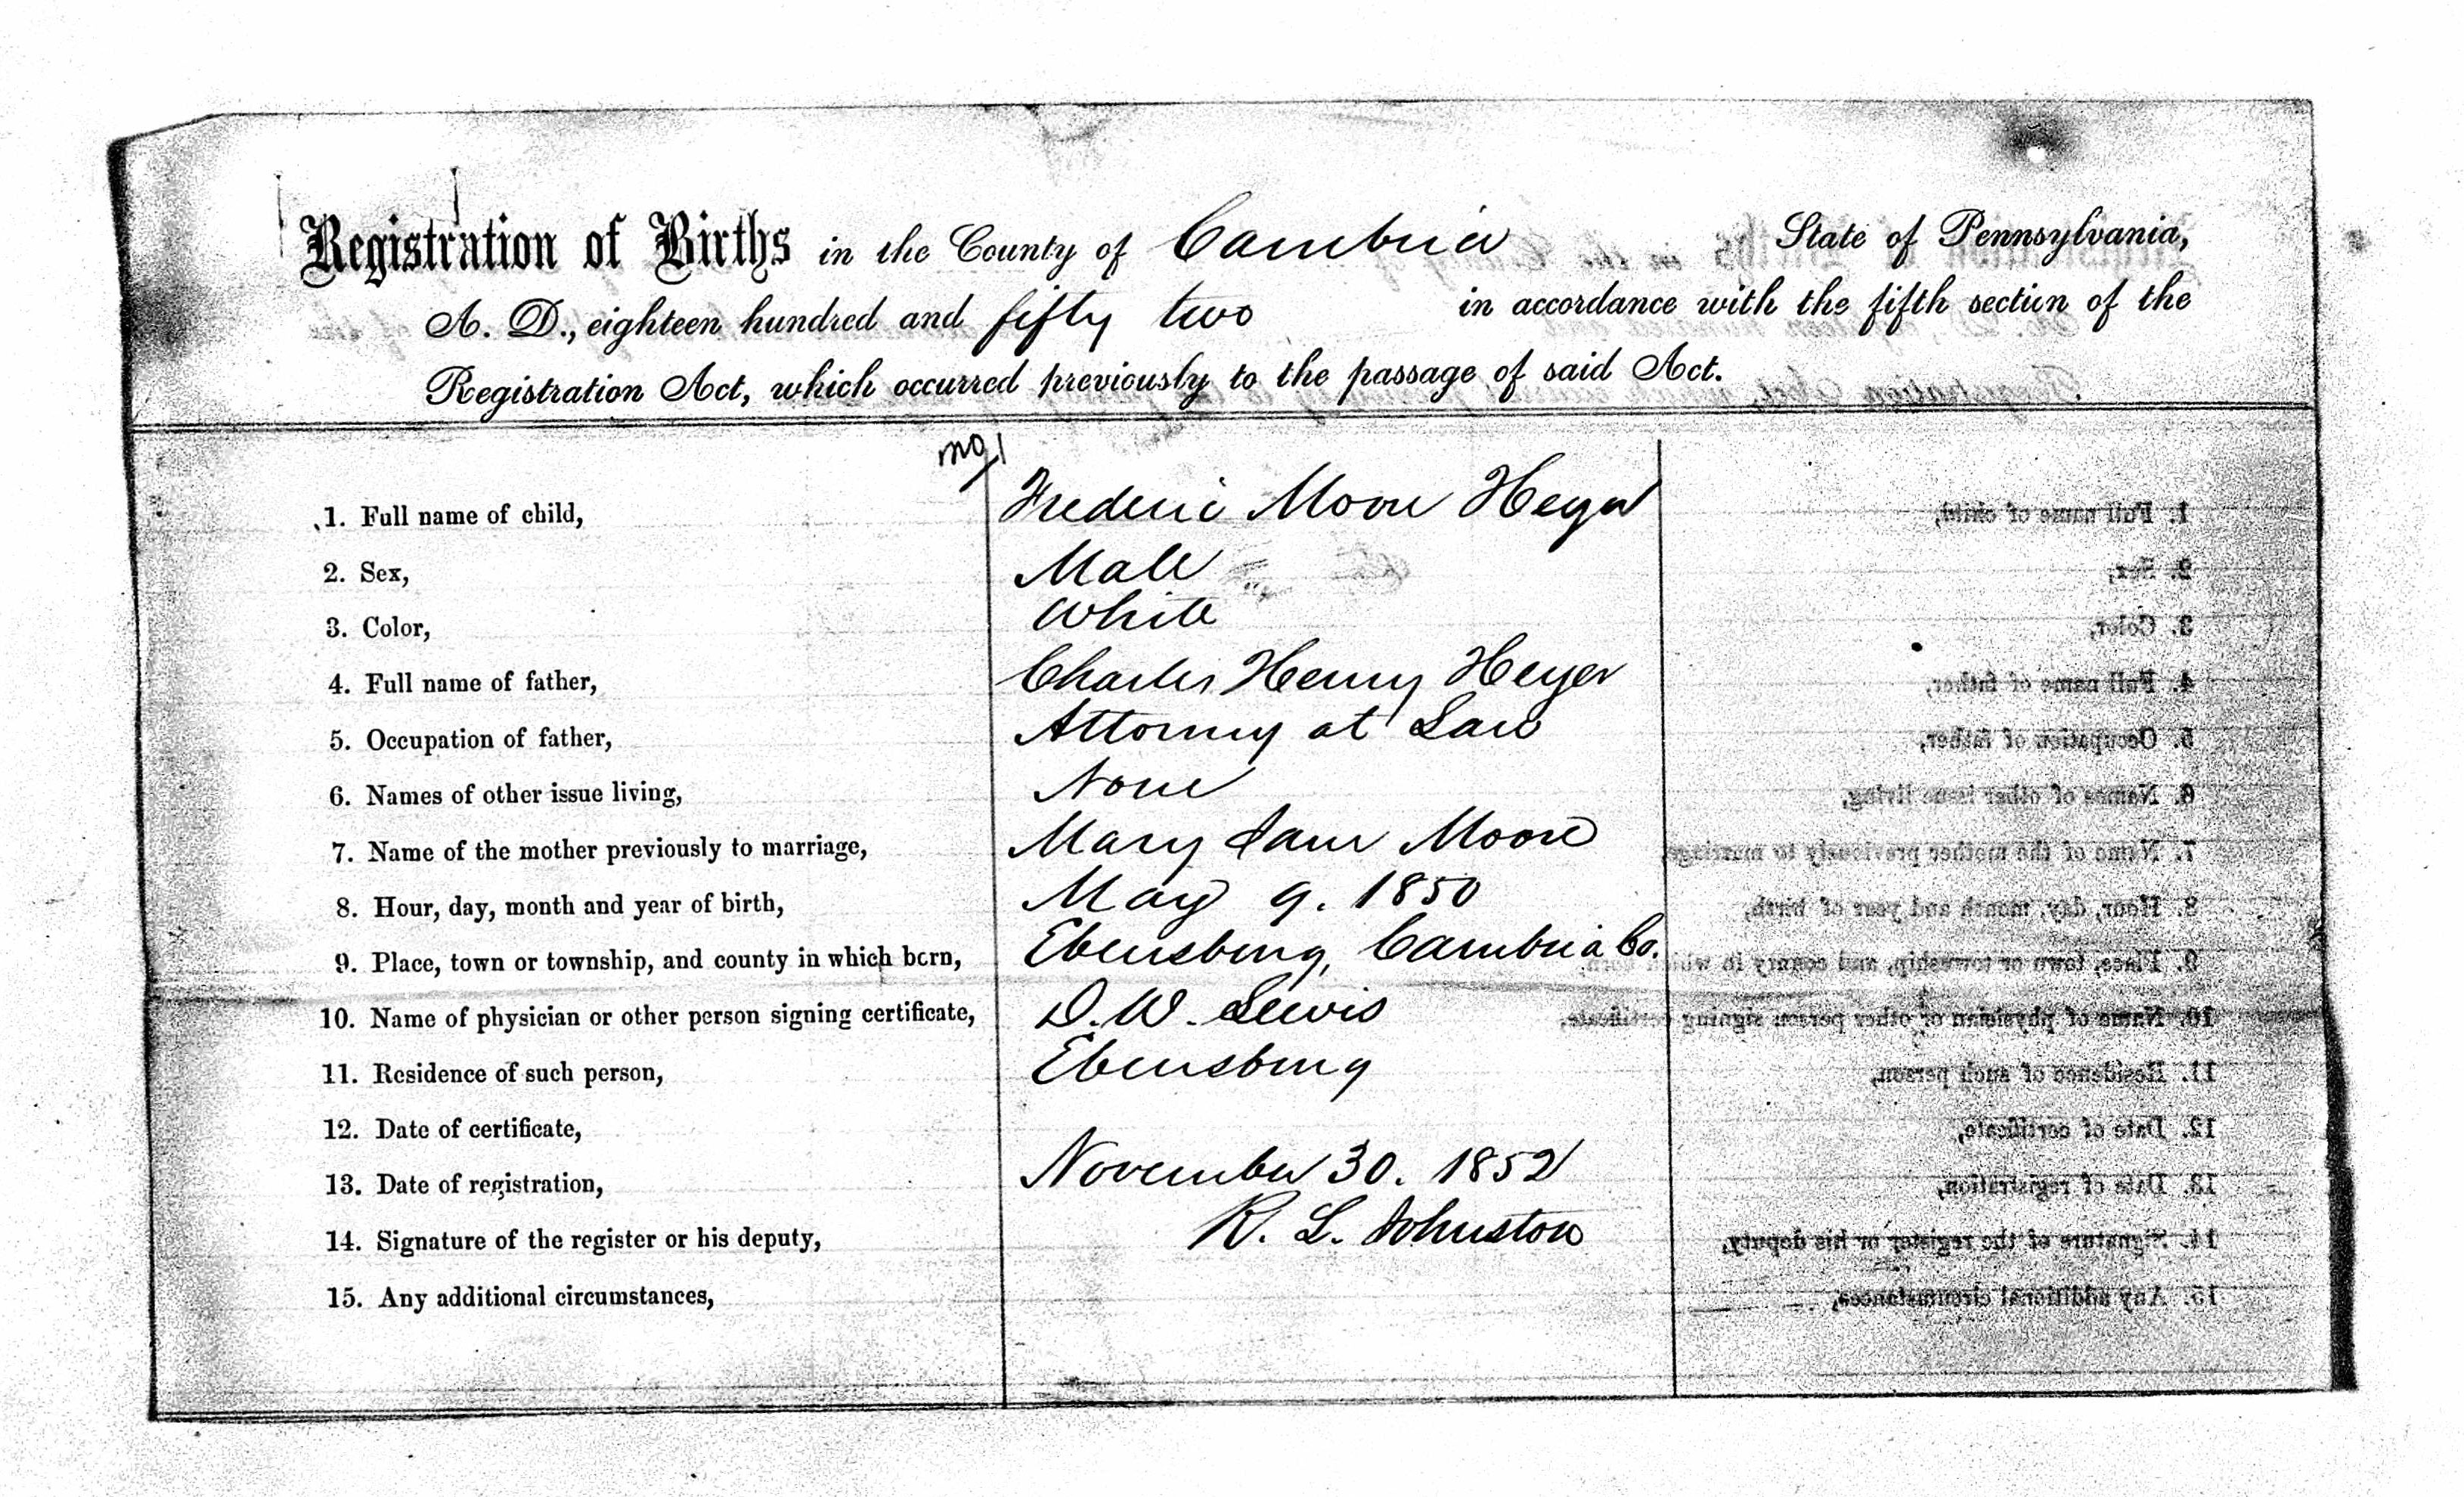 Registration of Births in the County of Cambria State of Pennsylvania,
A. D., eighteen hundred and fifty two in accordance with the fifth section of the
Registration Act, which occurred previously to the passage of said Act.
No 1
1. Full name of child, Frederic Moore Heyer
2. Sex, Male
3. Color, White
4. Full name of father, Charles Henry Heyer
5. Occupation of father, Attorney at Law
6. Names of other issue living, None
7. Name of the mother previously to marriage, Mary Jane Moore
8. Hour, day, month and year of birth, May 9. 1850
9. Place, town or township, and county in which born, Ebensburg, Cambria Co.
10. Name of physician or other person signing certificate, D. W. Lewis
11. Residence of such person, Ebensburg
12. Date of certificate,
13. Date of registration, November 30. 1852
14. Signature of the register or his deputy, R. L. Johnston
15. Any additional circumstances,